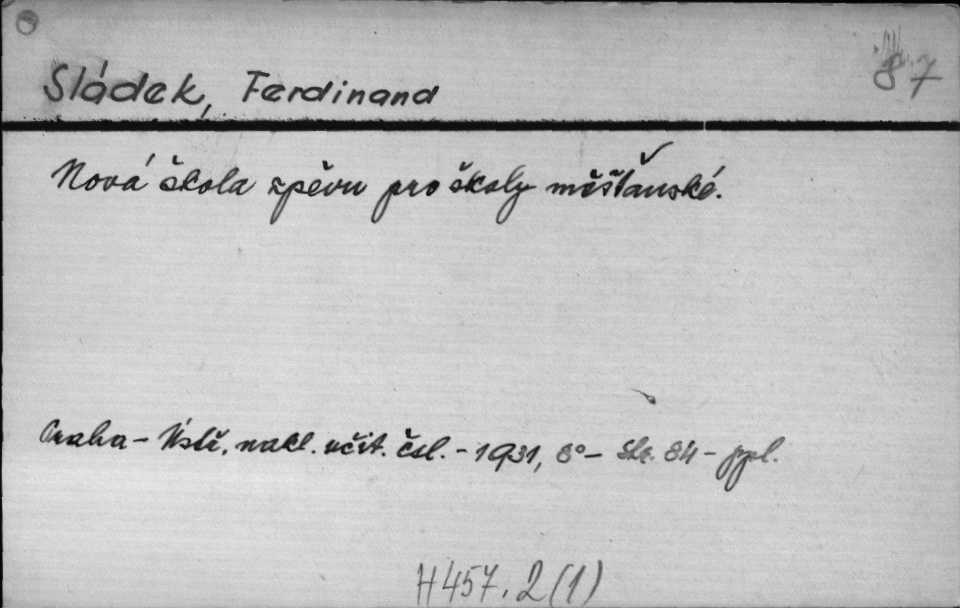 87
Sládek, Ferdinand
Nová škola zpěvu pro školy měšťanské.
Praha - Ústř. nakl. učit. čsl. - 1931, 8° - Str. 84 - ppl.
H457.2(1)